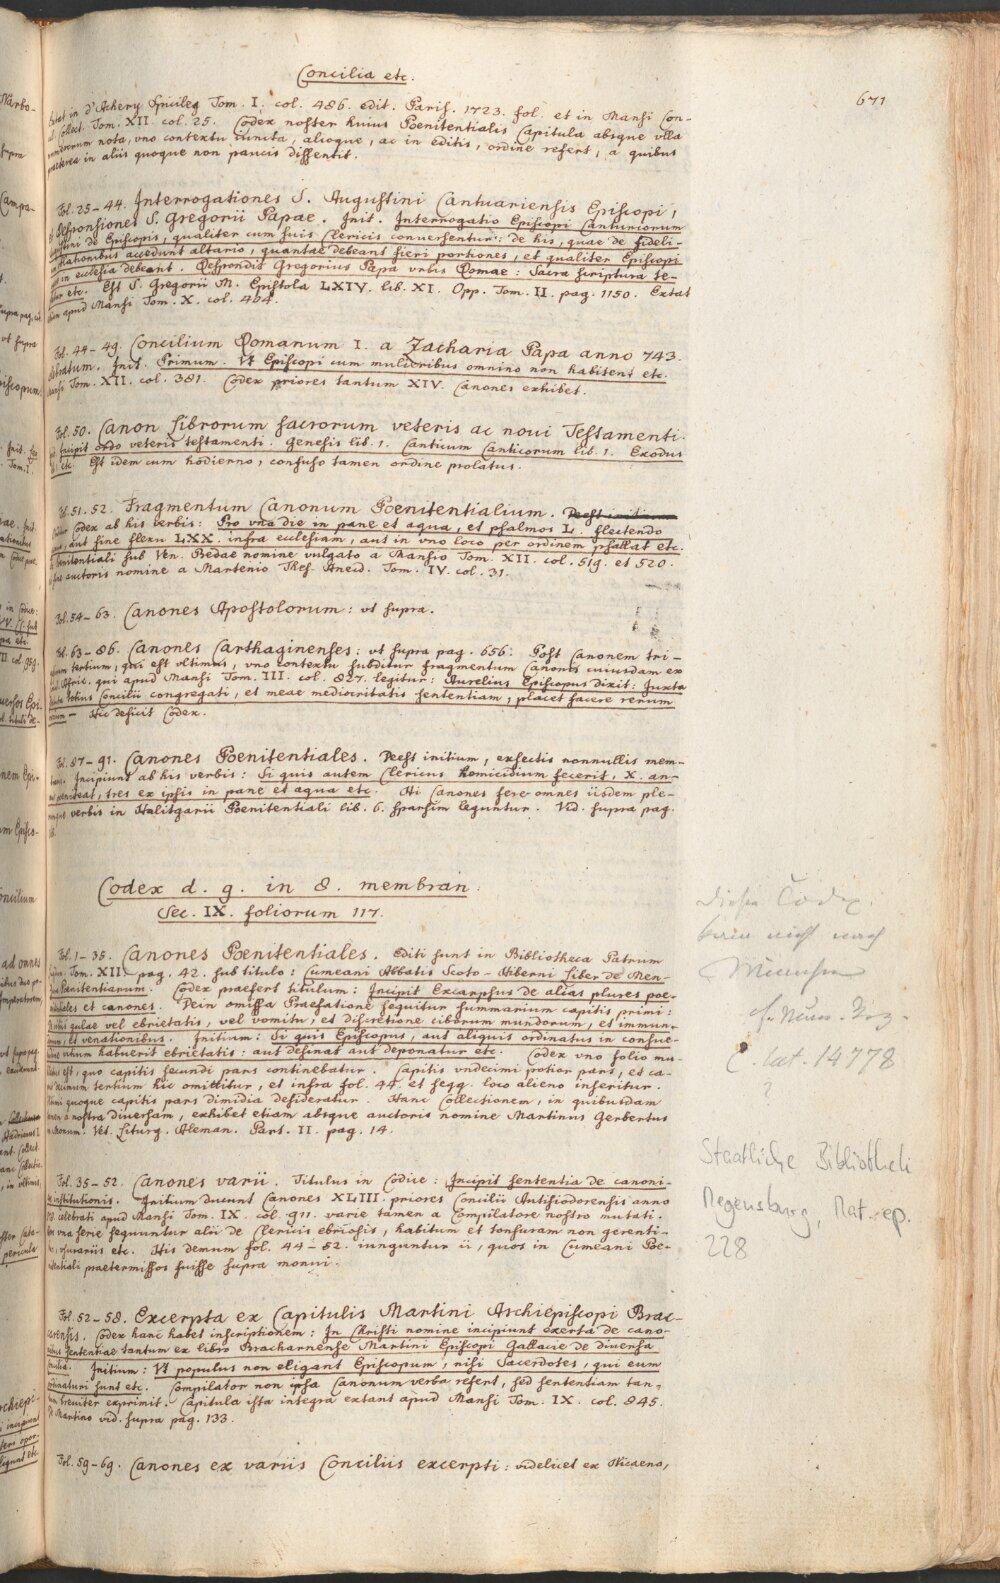 Concilia etc.
671
Extat in d'Achery Spicileg Tom. I. col. 486. edit. Paris. 1723. fol. et in Mansi Con-
Collect. Tom. XII. col. 25. Codex noster huius Poenitentialis Capitula absque vlla
numerorum nota, vno contextu iuncta, alioque, ac in editis, ordine refert, a quibus
praeterea in aliis quoque non paucis dissentit.
Fol. 25-44. Interrogationes S. Augustini Cantuariensis Episcopi,
et Responsiones S. Gregorii Papae. Init. Interrogatio Episcopi Canturiorum
de Episcopis, qualiter cum suis Clericis conuersentur: de his, quae de fideli-
oblationibus accedunt altario, quantae debeant fieri portiones, et qualiter Episcopi
in ecclesia debeant. Respondit Gregorius Papa vrbis Romae: Sacra scriptura te-
etc. Est S. Gregorii M. Epistola LXIV. lib. XI. Opp. Tom. II. pag. 1150. Extat
etiam apud Mansi Tom. X. col. 404.
Fol. 44-49. Concilium Romanum I. a Zacharia Papa anno 743.
celebratum. Init. Primum. Vt Episcopi cum mulieribus omnino non habitent etc.
Mansi Tom. XII. col. 381. Codex priores tantum XIV. Canones exhibet.
Fol. 50. Canon librorum sacrorum veteris ac noui Testamenti.
Incipit ordo veteris testamenti. Genesis lib. 1. Canticum Canticorum lib. 1. Exodus
etc. Est idem cum hodierno, confuso tamen ordine prolatus.
Fol. 51. 52. Fragmentum Canonum Poenitentialium. Deest initium
Codex ab his verbis: Pro vna die in pane et aqua, et psalmos L. flectendo
aut sine flexu LXX. infra ecclesiam, aut in vno loco per ordinem psallat etc.
Poenitentiali sub Ven. Bedae nomine vulgato a Mansio Tom. XII. col. 519. et 520.
sine auctoris nomine a Martenio Thes. Anecd. Tom. IV. col. 31.
Fol. 54-63. Canones Apostolorum: vt supra.
Fol. 63-86. Canones Carthaginenses: vt supra pag. 656. Post Canonem tri-
tertium, qui est vltimus, vno contextu subditur fragmentum Canonis cuiusdam ex
Afric. qui apud Mansi Tom. III. col. 827. legitur: Aurelius Episcopus dixit: Juxta
totius Concilii congregati, et meae mediocritatis sententiam, placet facere rerum
- Hic deficit Codex.
Fol. 87-91. Canones Poenitentiales. Deest initium, exsectis nonnullis mem-
Incipiunt ab his verbis: Si quis autem Clericus homicidium fecerit, X. an-
poeniteat, tres ex ipsis in pane et aqua etc. Hi Canones fere omnes iisdem ple-
verbis in Halitgarii Poenitentiali lib. 6. sparsim leguntur. Vid. supra pag.
Codex d. g. in 8. membran.
Sec. IX. foliorum 117.
Fol. 1-35. Canones Poenitentiales. Editi sunt in Bibliotheca Patrum
Tom. XII. pag. 42. sub titulo: Cumeani Abbatis Scoto-Hiberni Liber de Men-
Poenitentiarum. Codex praefert titulum: Incipit Excarpsus de alias plures poe-
et canones. Dein omissa Praefatione sequitur summarium capitis primi:
gulae vel ebrietatis, vel vomitu, et discretione ciborum mundorum, et immun-
et venationibus. Initium: Si quis Episcopus, aut aliquis ordinatus in consue-
vitium habuerit ebrietatis: aut desinat aut deponatur etc. Codex vno folio mu-
est, quo capitis secundi pars continebatur. Capitis vndecimi potior pars, et ca-
tertium hic omittitur, et infra fol. 44. et seqq. loco alieno inseritur.
quoque capitis pars dimidia desideratur. Hanc Collectionem, in quibusdam
a nostra diuersam, exhibet etiam absque auctoris nomine Martinus Gerbertus
Monum. Vet. Liturg. Aleman. Part. II. pag. 14.
Fol. 35-52. Canones varii. Titulus in Codice: Incipit sententia de canoni-
institutionis. Initium ducunt Canones XLIII. priores Concilii Antisiodorensis anno
celebrati apud Mansi Tom. IX. col. 911. varie tamen a Compilatore nostro mutati.
vna serie sequuntur alii de Clericis ebriosis, habitum et tonsuram non gerenti-
vsurariis etc. His demum fol. 44-52. iunguntur ii, quos in Cumeani Poe-
nitentiali praetermissos fuisse supra monui.
Fol. 52-58. Excerpta ex Capitulis Martini Archiepiscopi Brac-
carensis. Codex hanc habet inscriptionem: In Christi nomine incipiunt exerta de cano-
sententiae tantum ex libro Bracharnense Martini Episcopi Gallacie de diuersa
Initium: Vt populus non eligant Episcopum, nisi Sacerdotes, qui eum
ordinaturi sunt etc. Compilator non ipsa Canonum verba refert, sed sententiam tan-
tum breuiter exprimit. Capitula ista integra extant apud Mansi Tom. IX. col. 845.
De Martino vid. supra pag. 133.
Fol. 59-69. Canones ex variis Conciliis excerpti: videlicet ex Nicaeno,
dieser Codex
kam nicht nach
München
C. lat. 14778
Staatliche Bibliothek
Regensburg, Rat. ep.
228